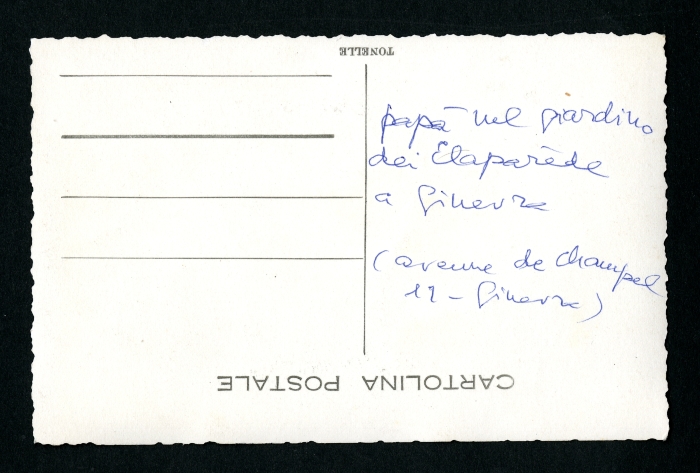 TONELLE
papà nel giardino
dei Claparède
a Ginevra
(avenue de Champel
11 - Ginevra)
CARTOLINA POSTALE